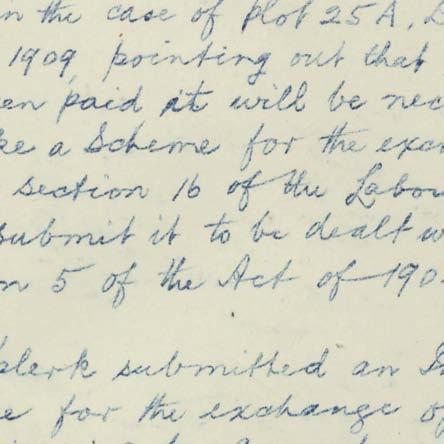 in the case of plot 25A,
1909, pointing out that
en paid it will be nec
ke a Scheme for the exc
section 16 of the Labou
submit it to be dealt w
n 5 of the Act of 190
clerk submitted an
e for the exchange of